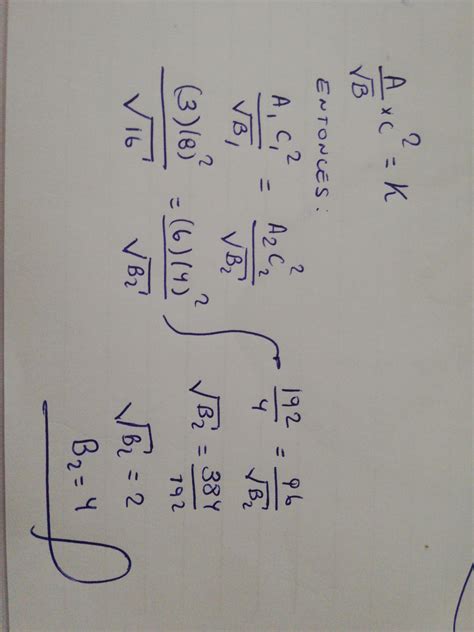 A/√B × C² = K
ENTONCES:
A₁C₁²/√B₁ = A₂C₂²/√B₂
(3)(8)²/√16 = (6)(4)²/√B₂
192/4 = 96/√B₂
√B₂ = 384/192
√B₂ = 2
B₂ = 4